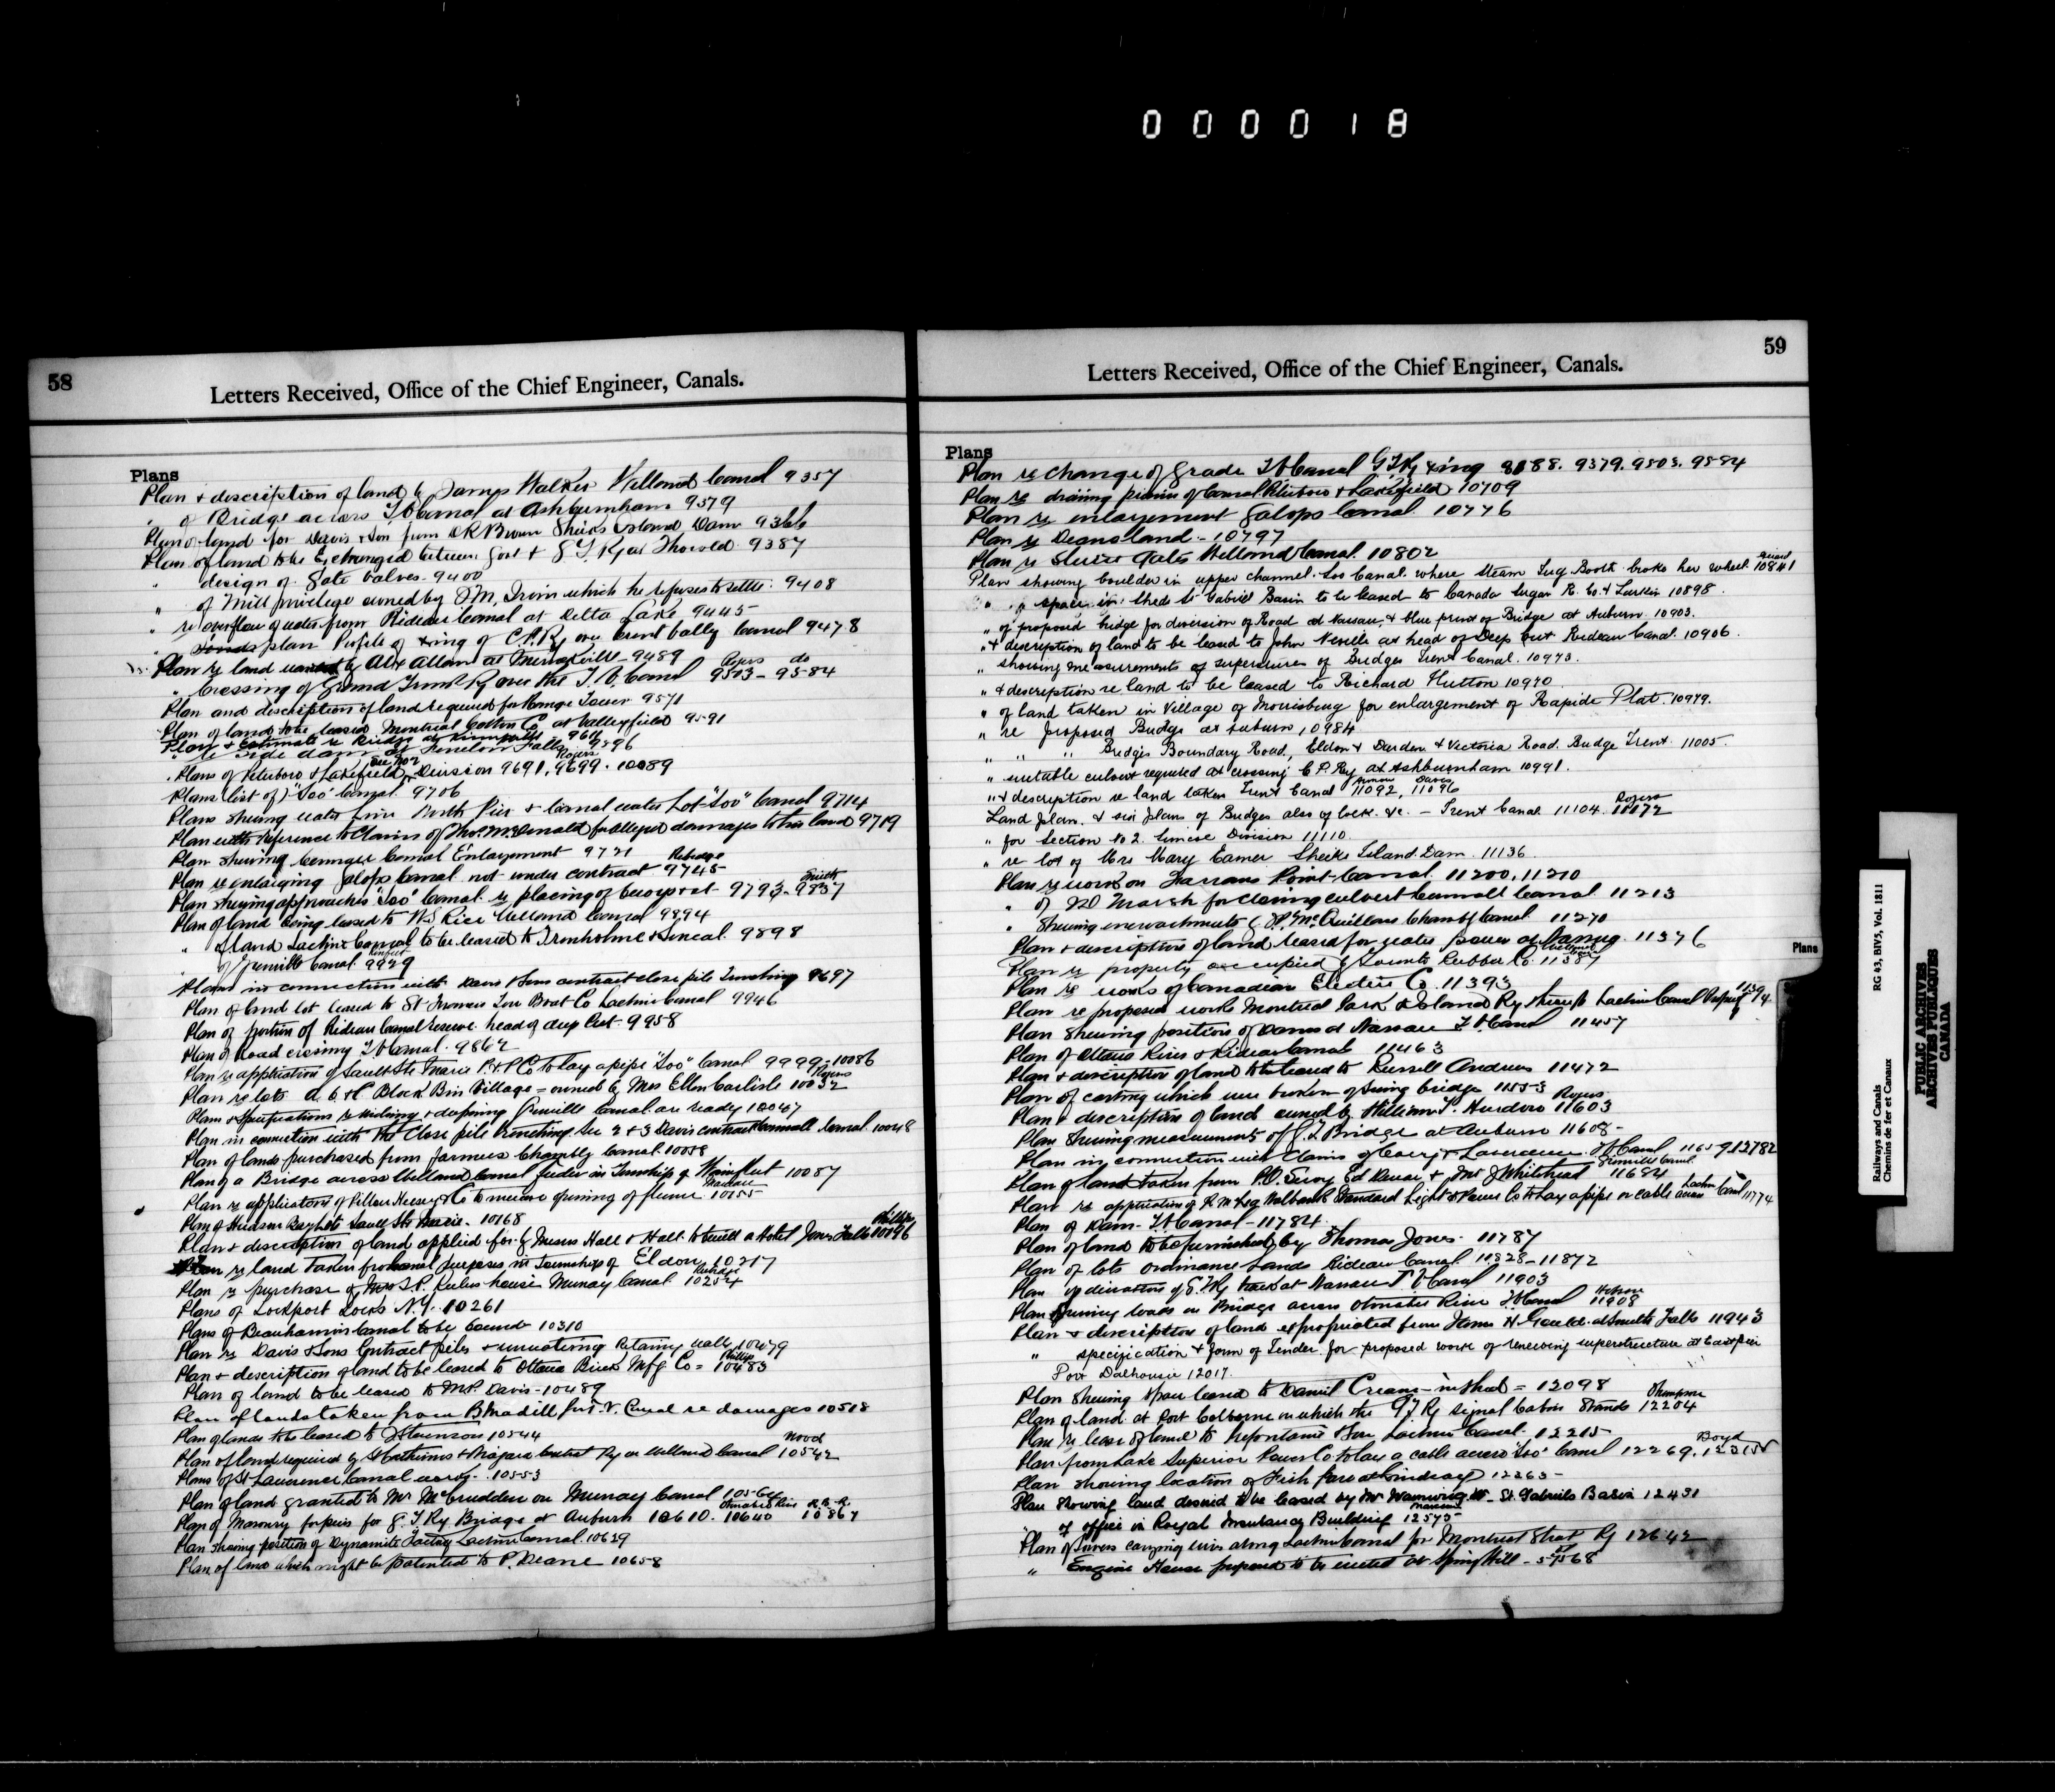 000018
58
Letters Received, Office of the Chief Engineer, Canals.
Plans
Plan & description of land by James Walker Welland Canal 9357
" of Bridge across T V Canal at Ashburnham 9379
Plan of land for Davis & Son from D R Brown Sheiks Island Dam
Plan of land to be Exchanged between Govt & G T Ry at Thorold 9387
" design of Gate Valves 9400
" of Mill privilege owned by which he refuses to settle 9408
" re overflow of water from Rideau Canal at Delta Lake 9445
" plan Profile of xing of C.P.Ry over Trent Vally Canal 9478
Plan re land by Alex Allan at Merrickville 9489
" Crossing of Grand Trunk Ry over the T. V. Canal Rogers 9503 - do 9584
Plan and description of land required for Range Tower 9571
Plan of land to be leased Montreal Cotton Co at Valleyfield 9591
Plan & Estimate re Bridge at 9611
" re Side dam at Fenelon Falls 9596
Plans of Peterboro & Lakefield Division 9691, Rogers 9699 . 10089
Plans list of "Soo" Canal 9706
Plans shewing water line North Pier & Canal water Lot "Soo" Canal 9714
Plan with reference to Claims of Thos. McDonald for alleged damages to his land 9719
Plan shewing Canal Enlargement 9721
Plan re enlarging Galops Canal not under contract 9745
Plan shewing approaches "Soo" Canal re placing of buoys &c 9793 - 9837
Plan of land being leased to W.S Rice Welland Canal 9894
" of land Lachine Canal to be leased to 9898
" of Grenville Canal 9929
Plans in connection with Davis & Sons contract close pile trenching 9697
Plan of land lot leased to St Francois Tow Boat Co Lachine Canal 9946
Plan of portion of Rideau Canal Reserve head of deep Cut 9958
Plan of Road crossing T V Canal 9862
Plan re application of Sault Ste Marie P. & P. Co to lay a pipe "Soo" Canal 9999 - 10086
Plan re lots a. b. & c Block Village - owned by Mrs Ellen Carlisle Rogers 10032
Plans & Specifications re widening & deepening Grenville Canal are ready 10047
Plan in connection with the Close pile trenching Sec 2 & 3 Davis contract Cornwall Canal 10048
Plan of lands purchased from farmers Chambly Canal 10058
Plan of a Bridge across Welland Canal feeder in Township of Wainfleet 10087
Plan re application of Pillow Hersey & Co to opening of flume 10155
Plan of Hudson Bay Lots Sault Ste Marie 10168
Plan & description of land applied for by Messrs Hall & Hall to build a Hotel Jones Falls Phillips 10196
Plan re land taken for Canal purposes in Township of Eldon 10217
Plan re purchase of Mrs house Murray Canal 10254
Plans of Lockport Locks N.Y. 10261
Plans of Beauharnois Canal to be 10310
Plan re Davis & Sons Contract piles & Retaining walls 10479
Plan & description of land to be leased to Ottawa Brick Mfg Co = Phillips 10483
Plan of land to be leased to M.P. Davis - 10489
Plan of lands taken from B Madill for T. V. Canal re damages 10518
Plan of lands to be leased to J Stevenson 10544
Plan of land required by St Catharines & Niagara Central Ry on Welland Canal Wood 10542
Plans of St Lawrence Canal 10553
Plan of land granted to Mr McCrudden on Murray Canal 10564
Plan of Masonry for piers for G. T Ry Bridge at Auburn 10610. Otonabee River 10640 10867
Plan showing position of Dynamite Factory Lachine Canal 10639
Plan of land which might be patented to P. Deane 10658
59
Letters Received, Office of the Chief Engineer, Canals.
Plans
Plan re change of Grade T V Canal G T Ry xing 9379. 9503. 9584
Plan re draining of Canal Peterboro & Lakefield 10709
Plan re enlargement Galops Canal 10776
Plan re Deans land - 10797
Plan re Sluice Gates Welland Canal. 10802
Plan showing boulder in upper channel Soo Canal where Steam Tug Booth broke her wheel 10841
" " space in Sheds St Gabriel Basin to be leased to Canada Sugar R. Co. & Larkin 10898
" of proposed bridge for diversion of Road at Nassau, & blue print of Bridge at Auburn 10903.
" & description of land to be leased to John Neville at head of Deep Cut Rideau Canal. 10906.
" showing measurements of superstructure of Bridges Trent Canal. 10973.
" & description re land to be leased to Richard Hutton 10970
" of land taken in Village of Morrisburg for enlargement of Rapide Plat. 10979.
" re proposed Bridge at Auburn 10984
" " Bridges Boundary Road, Eldon & & Victoria Road Bridge Trent 11005.
" suitable culvert required at crossing C P. Ry at Ashburnham 10991.
" & description re land taken Trent Canal 11092, 11096
Land plan & six plans of Bridges also of Lock &c. - Trent Canal 11104. Rogers 11172
" for Section No 2. Simcoe Division 11110
" re lot of Mrs Mary Eamer Sheiks Island Dam 11136
Plan re work on Farrans Point Canal 11200, 11210
" of for closing culvert Cornwall Canal 11213
" Shewing encroachments by McQuillan Chambly Canal 11270
Plan & description of land leased for water power at 11376
Plan re property occupied by Toronto Rubber Co. 11387
Plan re works of Canadian Electric Co. 11393
Plan re proposed works Montreal Park & Island Ry Lachine Canal
Plan Shewing position of Dams at Nassau T V Canal 11457
Plan of Ottawa River & Rideau Canal 11463
Plan & description of land to be leased to Russell Andrews 11472
Plan of casting which were broken of Swing bridge 11553
Plan & description of land owned by William T. Rogers 11603
Plan Shewing measurements of G.T Bridge at Auburn 11608
Plan in connection with Claims of Carey & Lawrence T V Canal
Plan of land taken from & Mr J Whitehead Grenville Canal 11684
Plan re application of Standard Light & Power Co to lay a pipe or cable across Lachine Canal 11774
Plan of Dam - T V Canal - 11784
Plan of land to be furnished by Thomas Jones. 11787
Plan of lots Ordinance Lands Rideau Canal 11828 - 11872
Plan of diversion of G. T Ry track at Nassau T V Canal 11903
Plan shewing loads on Bridge across Otonabee River T V Canal 11908
Plan & description of land expropriated from H. Gould at Smiths Falls 11943
" specification & form of Tender for proposed work of renewing superstructure at East Pier
Port Dalhousie 12017.
Plan Shewing space leased to Daniel in Shed = 12098
Plan of land at Port Colborne on which the G T Ry signal Cabin Stands Thompson 12204
Plan re lease of land to Lachine Canal. 12215
Plan from Lake Superior Power Co to lay a cable across 'Soo' Canal 12269. Boyd
Plan showing location of Fish pass at Lindsay 12263
Plan Showing land desired to be leased by Mr St. Gabriels Basin 12431
" of office in Royal Insurance Building 12575
Plan of towers carrying wires along Lachine Canal for Montreal Street Ry 12642
" Engine House proposed to be erected at Spring Hill
Plans
Railways and Canals
Chemins de fer et Canaux
RG 43, BIV5, Vol. 1811
PUBLIC ARCHIVES
ARCHIVES PUBLIQUES
CANADA